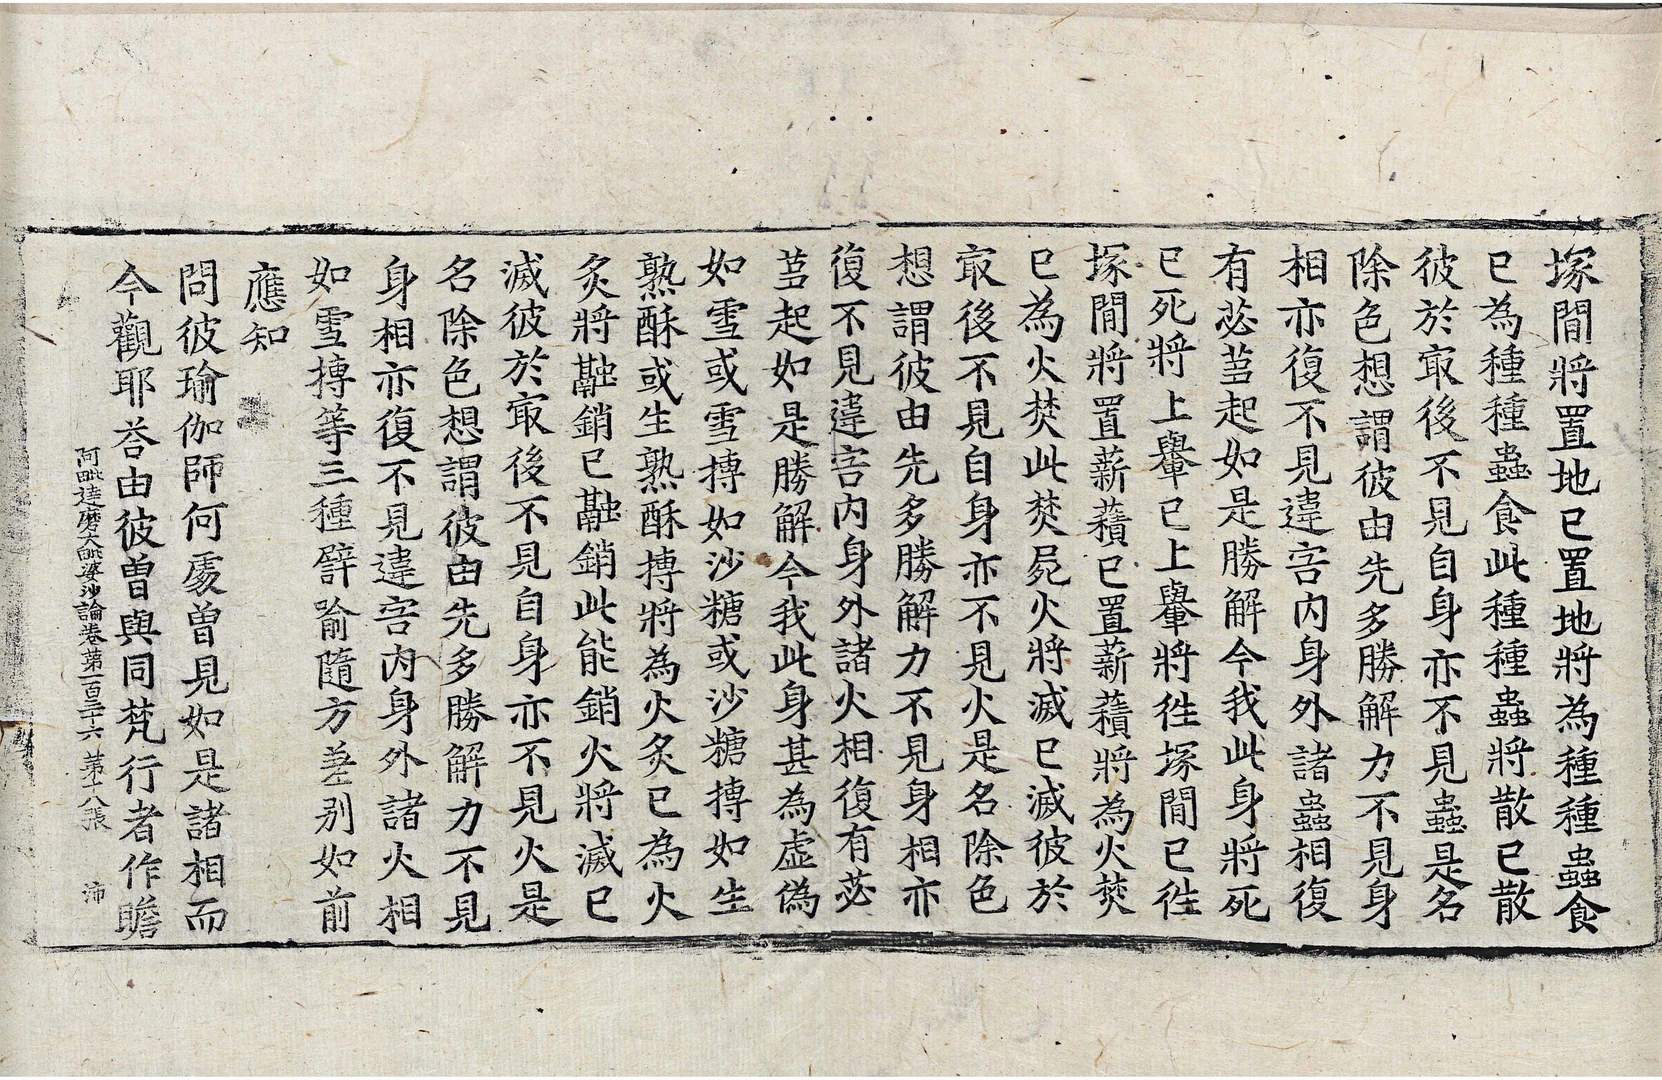 塚間將置地已置地將為種種蟲食
已為種種蟲食此種種蟲將散已散
彼於㝡後不見自身亦不見蟲是名
除色想謂彼由先多勝解力不見身
相亦復不見違害內身外諸蟲相復
有苾芻起如是勝解今我此身將死
已死將上轝已上轝將往塚間已往
塚間將置薪積已置薪積將為火焚
已為火焚此焚屍火將滅已滅彼於
㝡後不見自身亦不見火是名除色
想謂彼由先多勝解力不見身相亦
復不見違害內身外諸火相復有苾
芻起如是勝解今我此身甚為虛偽
如雪或雪摶如沙糖或沙糖摶如生
熟酥或生熟酥摶將為火炙已為火
炙將融銷已融銷此能銷火將滅已
滅彼於㝡後不見自身亦不見火是
名除色想謂彼由先多勝解力不見
身相亦復不見違害內身外諸火相
如雪摶等三種譬喻隨方差别如前
應知
問彼瑜伽師何處曾見如是諸相而
今觀耶荅由彼曾與同梵行者作瞻
阿毗達磨大毗婆沙論卷第一百三十六 第十八張 沛